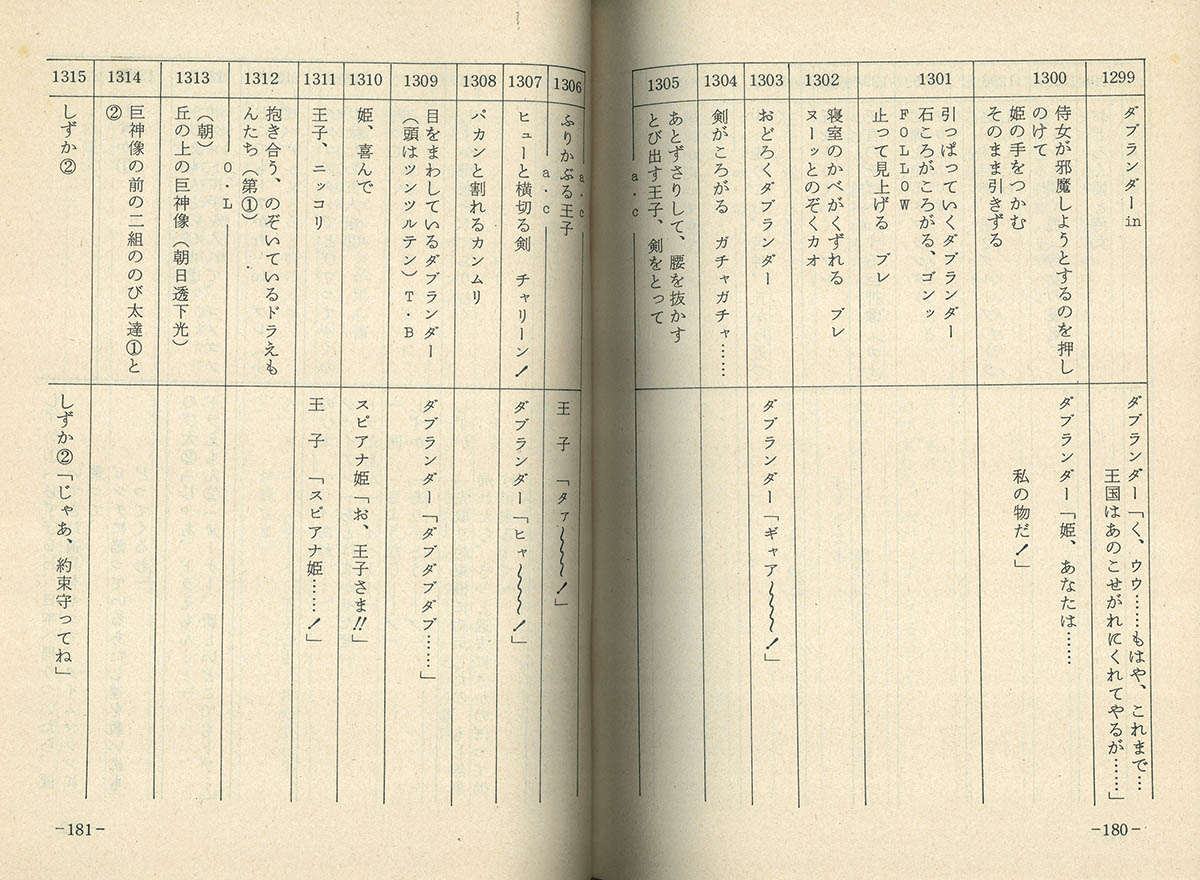 1299
ダブランダーin
ダブランダー「く、ウウ……もはや、これまで…
王国はあのこせがれにくれてやるが……」
1300
侍女が邪魔しようとするのを押し
のけて
姫の手をつかむ
そのまま引きずる
ダブランダー「姫、あなたは……
私の物だ!」
1301
引っぱっていくダブランダー
石ころがころがる、ゴンッ
FOLLOW
止って見上げる ブレ
1302
寝室のかべがくずれる ブレ
ヌーッとのぞくカオ
1303
おどろくダブランダー
ダブランダー「ギャア〜〜〜!」
1304
剣がころがる ガチャガチャ……
1305
あとずさりして、腰を抜かす
とび出す王子、剣をとって
a・c
-180-
1306
a・c
ふりかぶる王子
a・c
王子「タァ〜〜〜!」
1307
ヒューと横切る剣 チャリーン!
ダブランダー「ヒャ〜〜〜!」
1308
パカンと割れるカンムリ
1309
目をまわしているダブランダー
(頭はツンツルテン)T・B
ダブランダー「ダブダブダブ……」
1310
姫、喜んで
スピアナ姫「お、王子さま!!」
1311
王子、ニッコリ
王子「スピアナ姫……!」
1312
抱き合う、のぞいているドラえも
んたち(第①)
O・L
1313
(朝)
丘の上の巨神像(朝日透下光)
1314
巨神像の前の二組ののび太達①と
②
1315
しずか②
しずか②「じゃあ、約束守ってね」
-181-